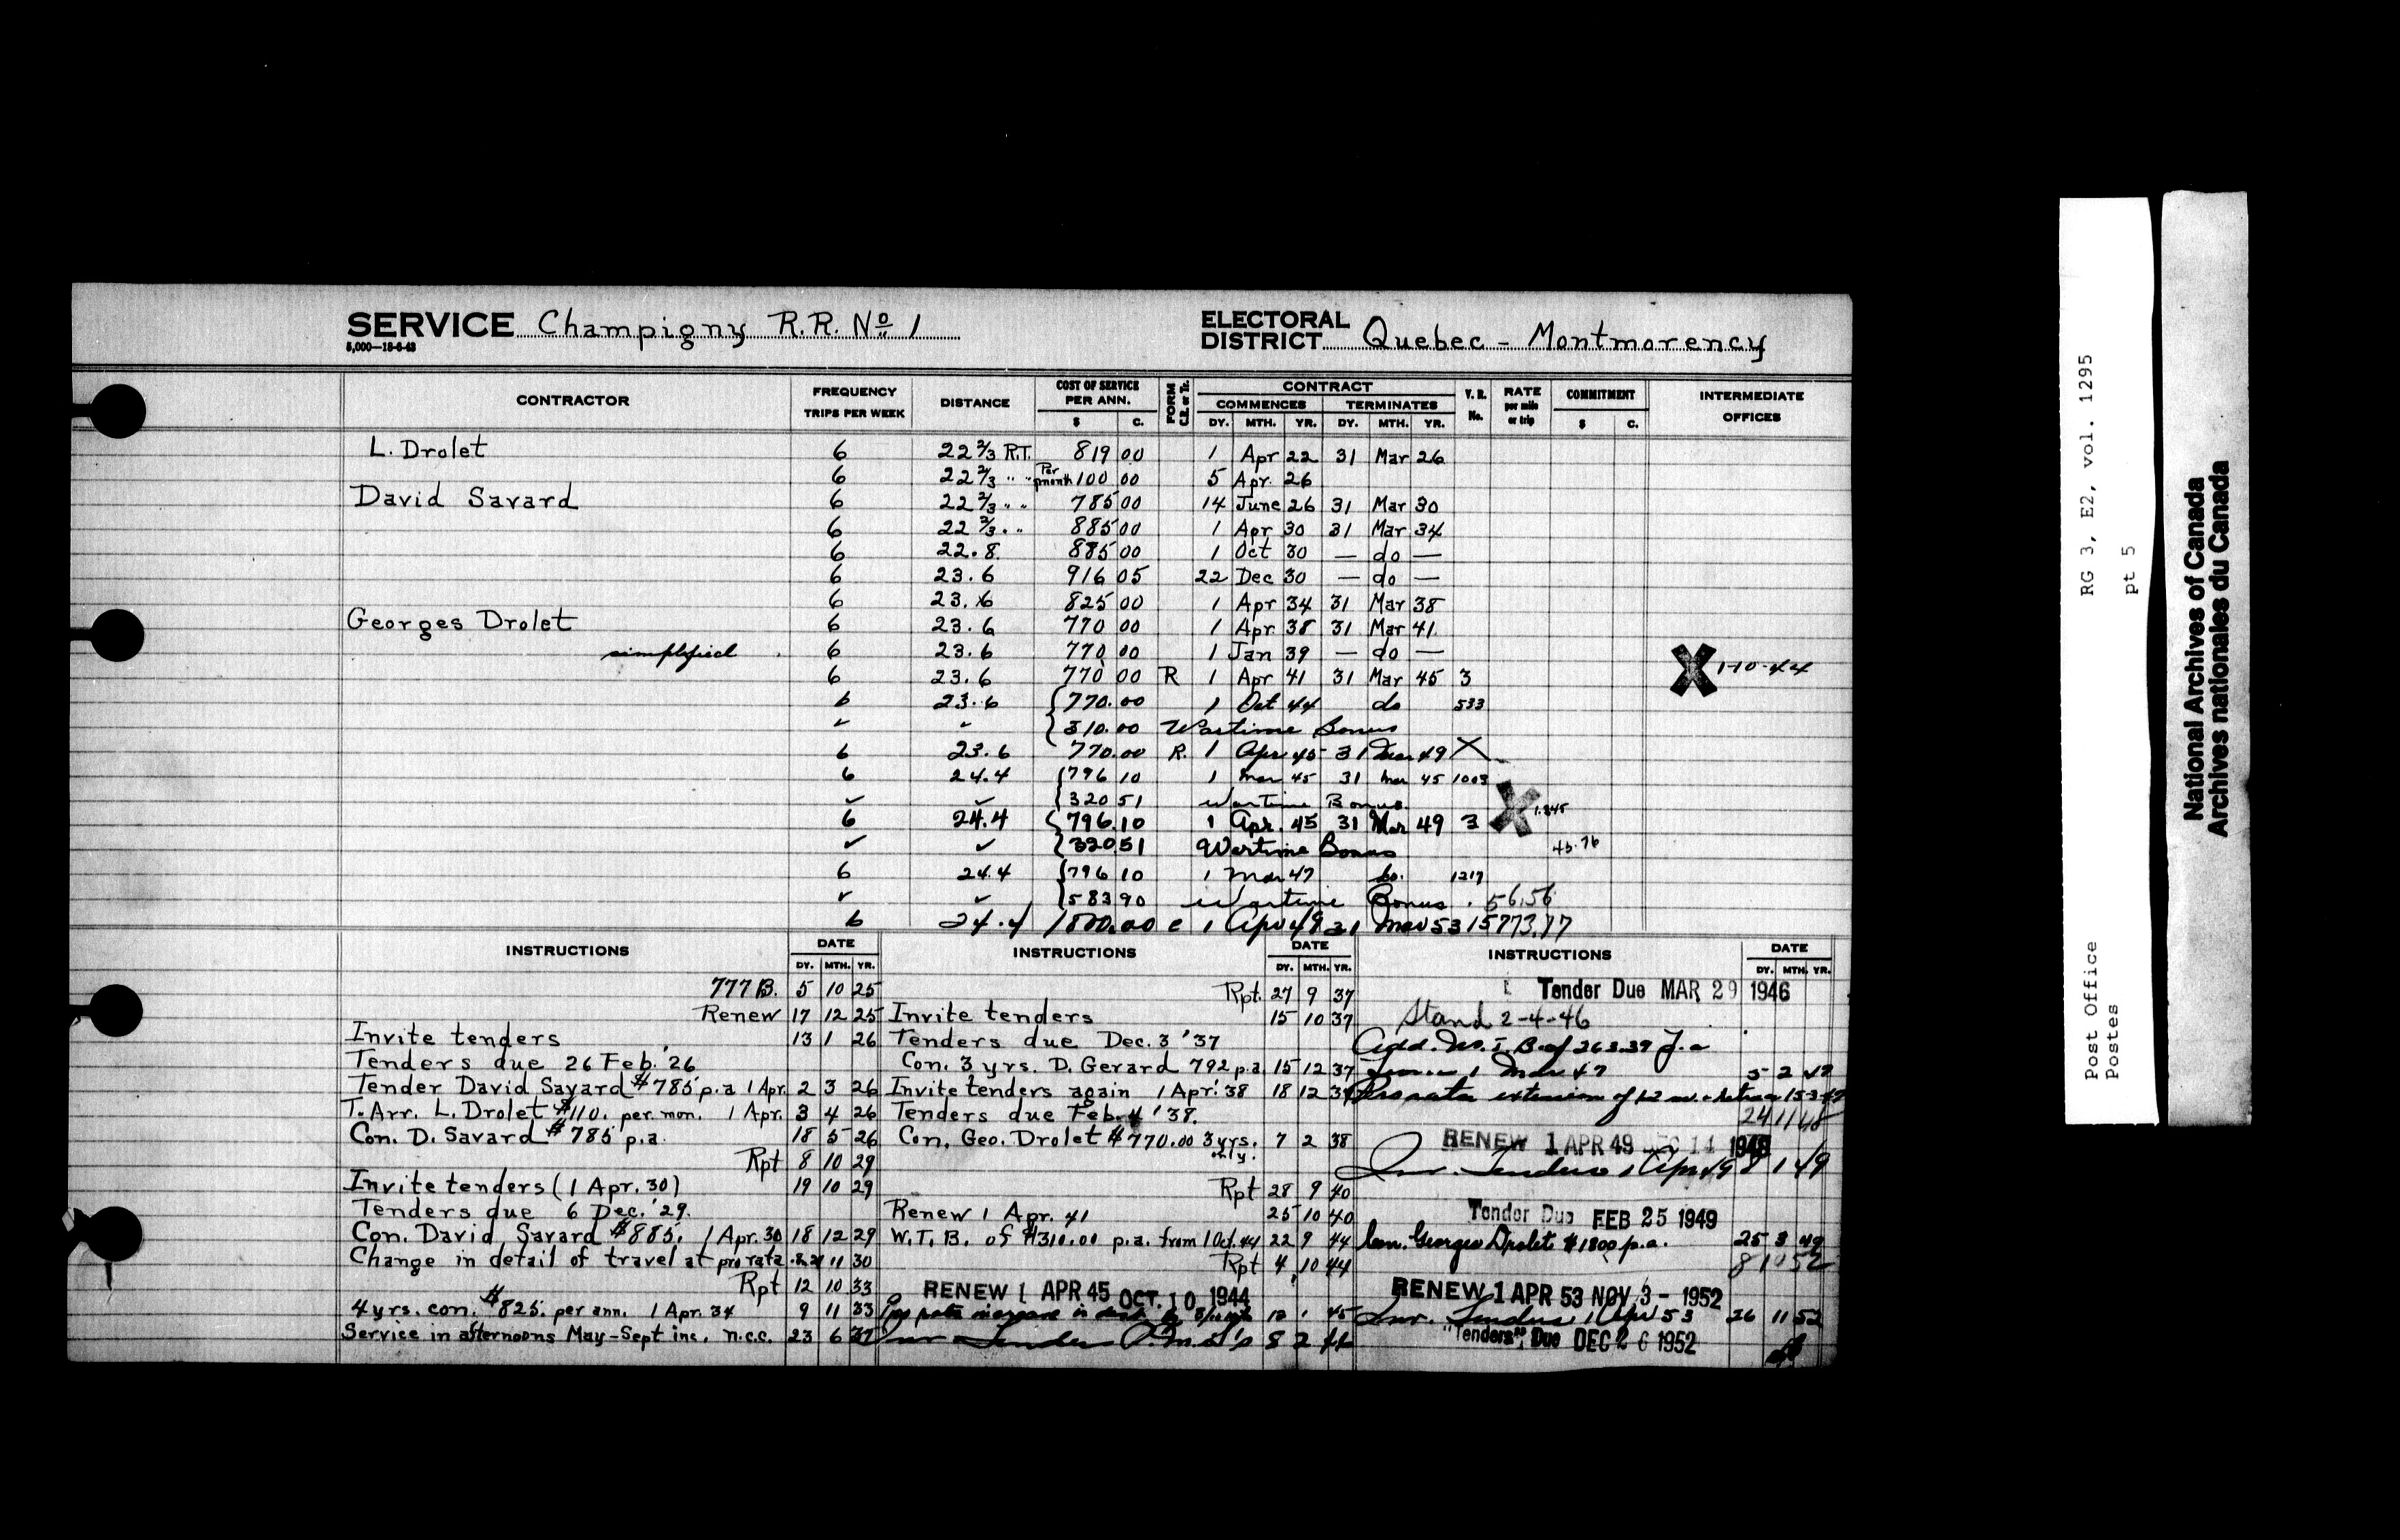 SERVICE Champigny R.R. No 1
5,000—18-6-43
ELECTORAL DISTRICT Quebec - Montmorency
CONTRACTOR FREQUENCY TRIPS PER WEEK DISTANCE COST OF SERVICE PER ANN. $ C. FORM C.E. or Tr. CONTRACT COMMENCES DY. MTH. YR. TERMINATES DY. MTH. YR. V.R. No. RATE per mile or trip COMMITMENT $ C. INTERMEDIATE OFFICES
L. Drolet 6 22 2/3 R.T. 819 00 1 Apr 22 31 Mar 26
6 22 2/3 " " Per month 100 00 5 Apr. 26
David Savard 6 22 2/3 " " 785 00 14 June 26 31 Mar 30
6 22 2/3 " " 885 00 1 Apr 30 31 Mar 34
6 22.8 885 00 1 Oct 30 — do —
6 23.6 916 05 22 Dec 30 — do —
6 23.6 825 00 1 Apr 34 31 Mar 38
Georges Drolet 6 23.6 770 00 1 Apr 38 31 Mar 41
simplified 6 23.6 770 00 1 Jan 39 — do —
6 23.6 770 00 R 1 Apr 41 31 Mar 45 3 X 1-10-44
6 23.6 {770.00 1 Oct 44 do 533
✓ ✓ {310.00 Wartime Bonus
6 23.6 770.00 R. 1 Apr 45 31 Mar 49 X
6 24.4 {796 10 1 Mar 45 31 Mar 45 1003
✓ ✓ {320 51 Wartime Bonus
6 24.4 {796.10 1 Apr. 45 31 Mar 49 3 X 1.345
✓ ✓ {320.51 Wartime Bonus 45.76
6 24.4 {796 10 1 Mar 47 do. 1217
✓ ✓ {583 90 Wartime Bonus . 56.56
6 24.4 1800.00 c 1 Apr 49 31 Mar 53 15773.77
INSTRUCTIONS DATE DY. MTH. YR.
777 B. 5 10 25
Renew 17 12 25
Invite tenders 13 1 26
Tenders due 26 Feb. '26
Tender David Savard $785 p.a 1 Apr. 2 3 26
T. Arr. L. Drolet $110. per mon. 1 Apr. 3 4 26
Con. D. Savard $785 p.a. 18 5 26
Rpt 8 10 29
Invite tenders (1 Apr. 30) 19 10 29
Tenders due 6 Dec. '29.
Con. David Savard $885. 1 Apr. 30 18 12 29
Change in detail of travel at pro rata 11 30
Rpt 12 10 33
4 yrs. con. $825. per ann. 1 Apr. 34 9 11 33
Service in afternoons May-Sept inc. n.c.c. 23 6 37
INSTRUCTIONS DATE DY. MTH. YR.
Rpt. 27 9 37
Invite tenders 15 10 37
Tenders due Dec. 3 '37
Con. 3 yrs. D. Gerard 792 p.a. 15 12 37
Invite tenders again 1 Apr. '38 18 12 37
Tenders due Feb. 4 '38.
Con. Geo. Drolet $770.00 3 yrs. only. 7 2 38
Rpt 28 9 40
Renew 1 Apr. 41 25 10 40
W.T.B. of $310.00 p.a. from 1 Oct. 44 22 9 44
Rpt 4 10 44
RENEW 1 APR 45 OCT. 10 1944
pro rata increase in 12 1 45
Inv. Tenders 8 2 46
INSTRUCTIONS DATE DY. MTH. YR.
Tender Due MAR 29 1946
Stand 2-4-46
Add. W.T.B. of 263.39 p.a
from 1 Mar 47 5 2 47
Pro rata extension of 15-3-47
24 11 48
RENEW 1 APR 49 DEC 14 1948
Inv. Tenders 1 Apr 49 8 1 49
Tender Due FEB 25 1949
Con. Georges Drolet $1800 p.a. 25 3 49
8 10 52
RENEW 1 APR 53 NOV 3 - 1952
Inv. Tenders 1 Apr 53 26 11 52
"Tenders" Due DEC 26 1952
Post Office RG 3, E2, vol. 1295
Postes pt 5
National Archives of Canada
Archives nationales du Canada